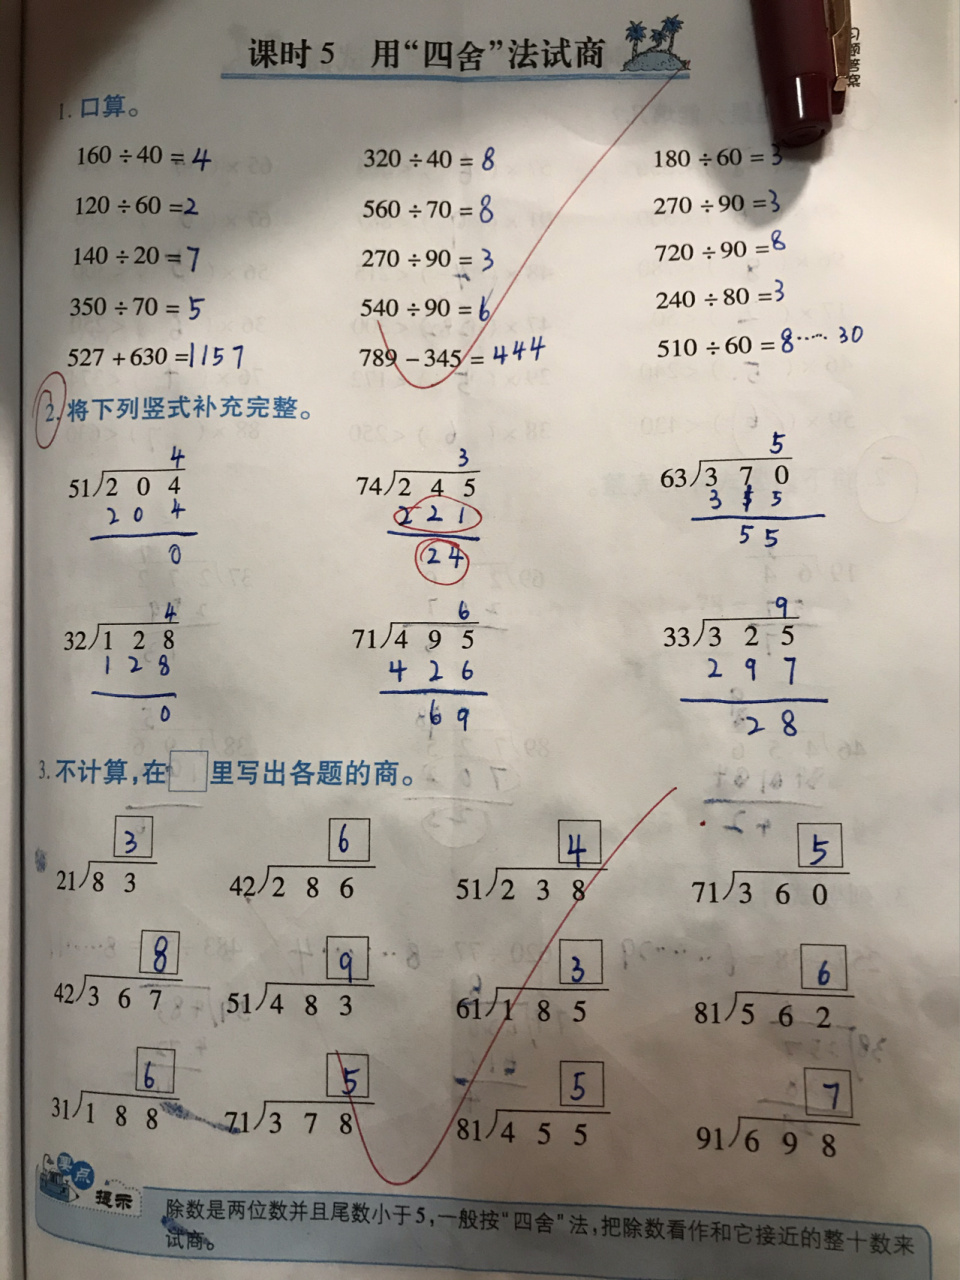 课时5 用“四舍”法试商
1. 口算。
160÷40=4 320÷40=8 180÷60=3
120÷60=2 560÷70=8 270÷90=3
140÷20=7 270÷90=3 720÷90=8
350÷70=5 540÷90=6 240÷80=3
527+630=1157 789-345=444 510÷60=8……30
2. 将下列竖式补充完整。
4 3 5
51 204 74 245 63 370
204 221 315
0 24 55
4 6 9
32 128 71 495 33 325
128 426 297
0 69 28
3. 不计算,在□里写出各题的商。
3 6 4 5
21 83 42 286 51 238 71 360
8 9 3 6
42 367 51 483 61 185 81 562
6 5 5 7
31 188 71 378 81 455 91 698
要点
提示
除数是两位数并且尾数小于5,一般按“四舍”法,把除数看作和它接近的整十数来
试商。